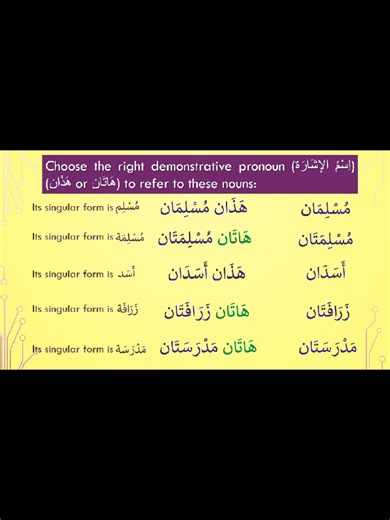 Choose the right demonstrative pronoun (اِسْمُ الإشَارَة)
(هَذَان or هَاتَان) to refer to these nouns:
Its singular form is مُسْلِم هَذَان مُسْلِمَان مُسْلِمَان
Its singular form is مُسْلِمَة هَاتَان مُسْلِمَتَان مُسْلِمَتَان
Its singular form is أَسَد هَذَان أَسَدَان أَسَدَان
Its singular form is زَرَافَة هَاتَان زَرَافَتَان زَرَافَتَان
Its singular form is مَدْرَسَة هَاتَان مَدْرَسَتَان مَدْرَسَتَان